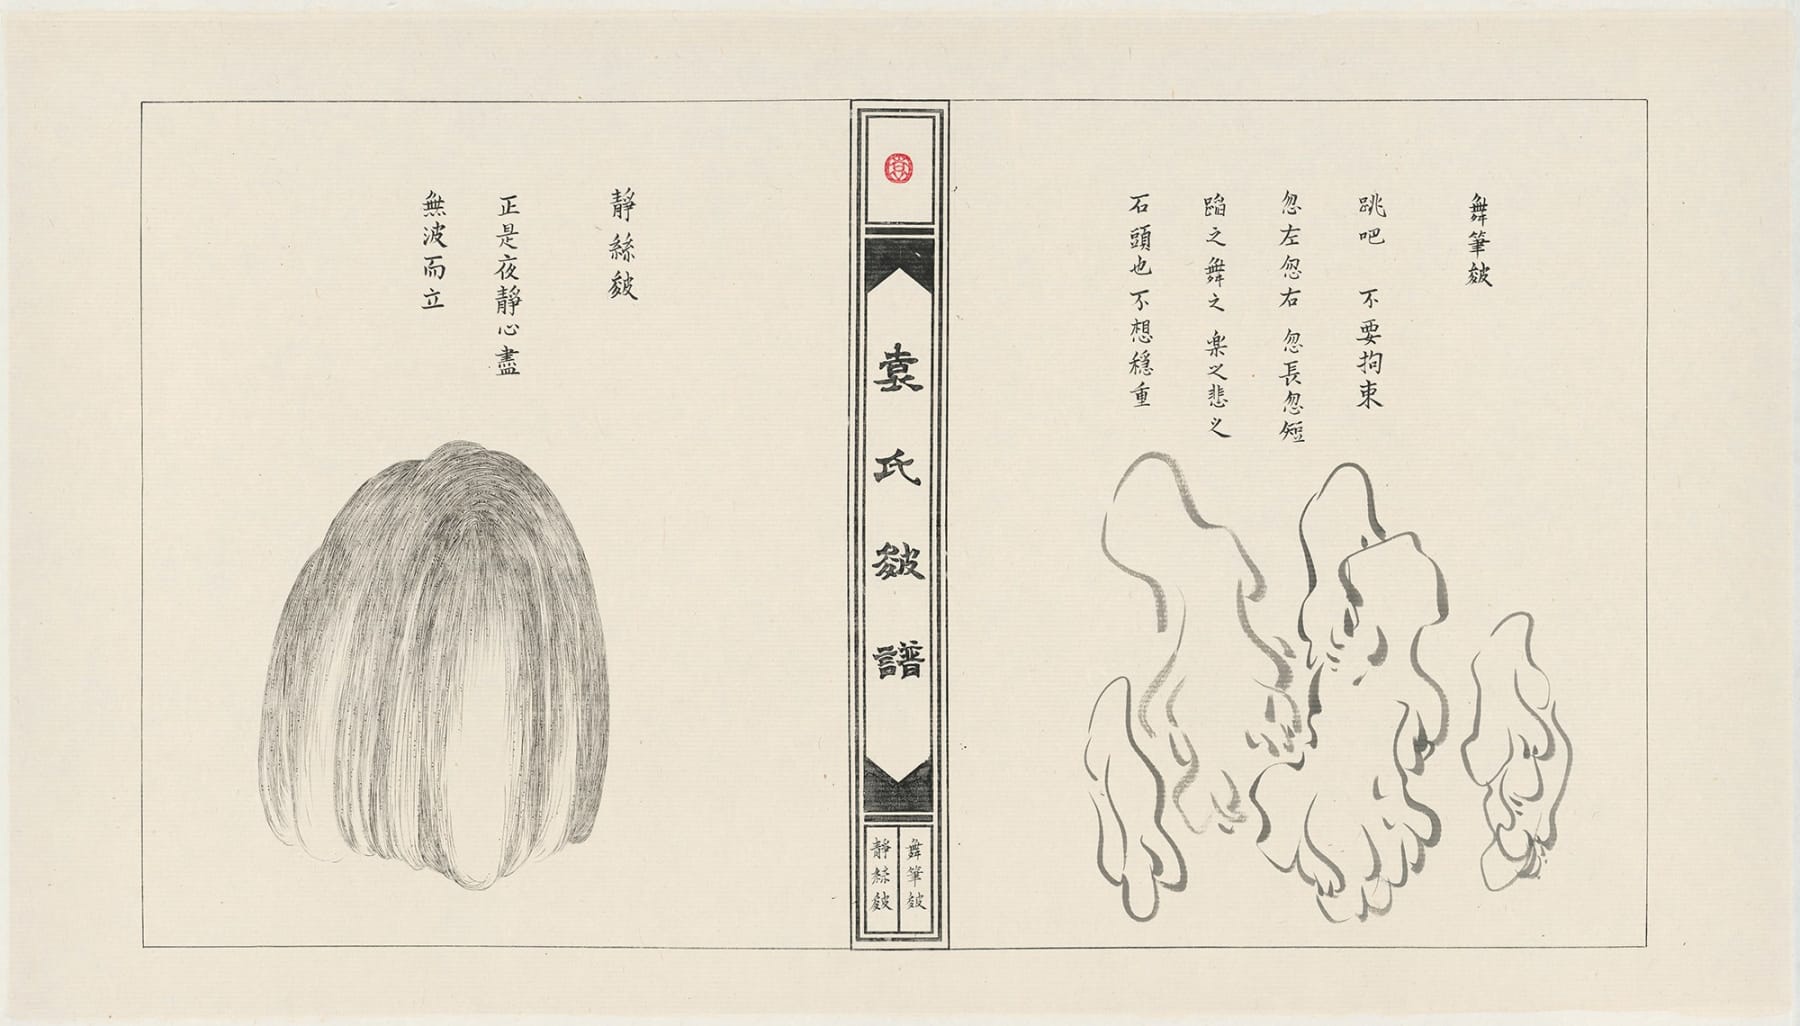 舞筆皴
跳吧 不要拘束
忽左忽右 忽長忽短
蹈之舞之 楽之悲之
石頭也不想穩重
袁氏皴譜
舞筆皴
靜絲皴
靜絲皴
正是夜靜心盡
無波而立